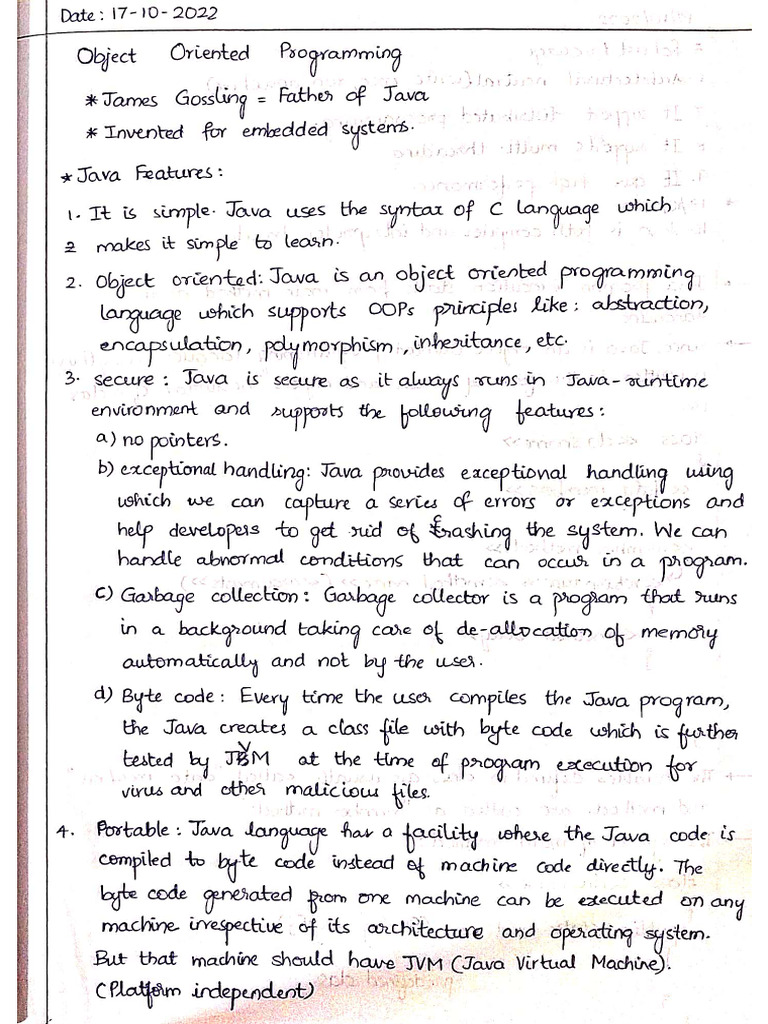 Date: 17-10-2022
Object Oriented Programming
* James Gossling = Father of Java
* Invented for embedded systems.
* Java Features:
1. It is simple. Java uses the syntax of C language which
2 makes it simple to learn.
2. Object oriented: Java is an object oriented programming
language which supports OOPs principles like: abstraction,
encapsulation, polymorphism, inheritance, etc.
3. secure: Java is secure as it always runs in Java-runtime
environment and supports the following features:
a) no pointers.
b) exceptional handling: Java provides exceptional handling using
which we can capture a series of errors or exceptions and
help developers to get rid of crashing the system. We can
handle abnormal conditions that can occur in a program.
c) Garbage collection: Garbage collector is a program that runs
in a background taking care of de-allocation of memory
automatically and not by the user.
d) Byte code: Every time the user compiles the Java program,
the Java creates a class file with byte code which is further
tested by JVM at the time of program execution for
virus and other malicious files.
4. Portable: Java language has a facility where the Java code is
compiled to byte code instead of machine code directly. The
byte code generated from one machine can be executed on any
machine irrespective of its architecture and operating system.
But that machine should have JVM (Java Virtual Machine).
(Platform independent)